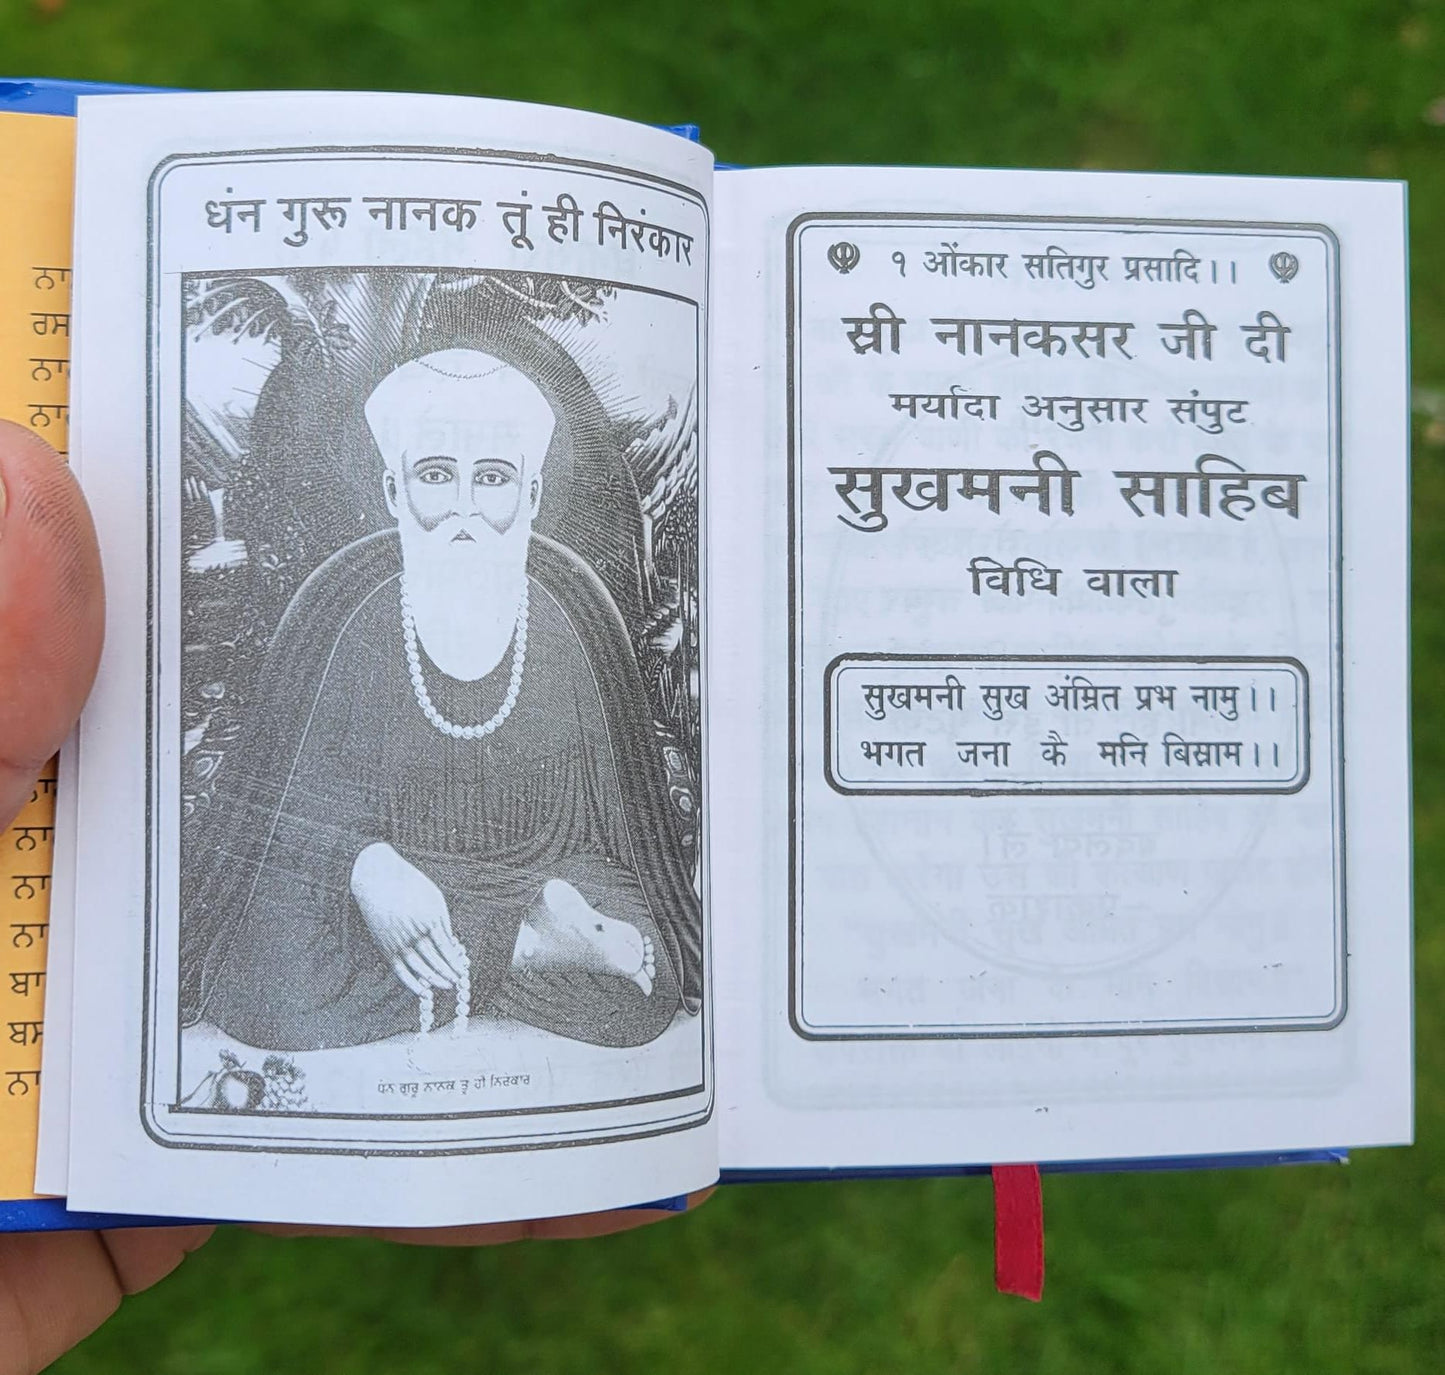 ਨਾ
ਰਸ
ਨਾ
ਨਾ
ਨਾ
ਨਾ
ਨਾ
ਬਾ
ਬਸ
ਨਾ
धंन गुरू नानक तूं ही निरंकार
ਧੰਨ ਗੁਰੂ ਨਾਨਕ ਤੂੰ ਹੀ ਨਿਰੰਕਾਰ
१ ओंकार सतिगुर प्रसादि।।
स्री नानकसर जी दी
मर्यादा अनुसार संपुट
सुखमनी साहिब
विधि वाला
सुखमनी सुख अंम्रित प्रभ नामु।।
भगत जना कै मनि बिस्राम।।